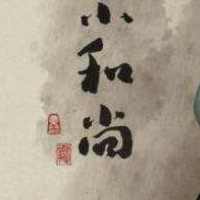 小和尚